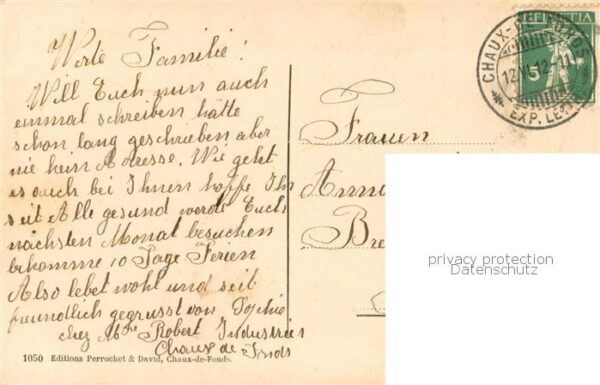 Werte Familie!
Will Euch nun auch
einmal schreiben hätte
schon lang geschrieben aber
nie kein Adresse. Wie geht
es auch bei Ihnen hoffe Ihr
seit Alle gesund werde Euch
nächsten Monat besuchen
bekomme 10 Tage Ferien
Also lebet wohl und seit
freundlich gegrüsst von
chez Mme Robert Industrie
Chaux de Fonds
1050 Editions Perrochet & David, Chaux-de-Fonds.
HELVETIA
5
CHAUX-DE-FONDS
12.VI.12-11
EXP. LETT.
Frauen
Anna
Bre
privacy protection
Datenschutz